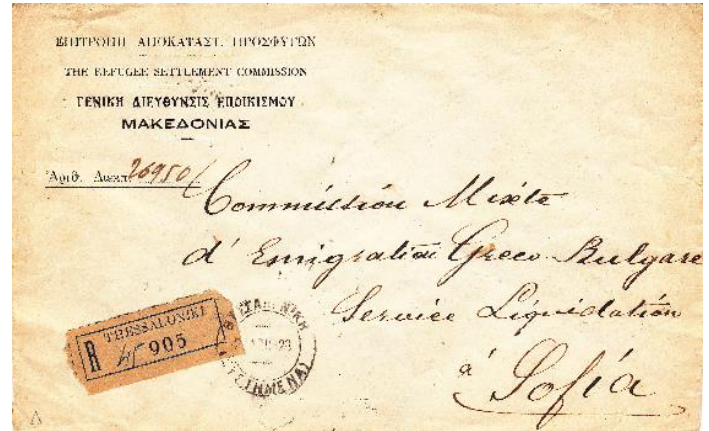 ΕΠΙΤΡΟΠΗ ΑΠΟΚΑΤΑΣΤ. ΠΡΟΣΦΥΓΩΝ
THE REFUGEE SETTLEMENT COMMISSION
ΓΕΝΙΚΗ ΔΙΕΥΘΥΝΣΙΣ ΕΠΟΙΚΙΣΜΟΥ
ΜΑΚΕΔΟΝΙΑΣ
Ἀριθ. Διεκπ. 26950
Commission Mixte
d' Emigration Greco-Bulgare
Service Liquidation
à Sofia
THESSALONIKI
R 905
ΘΕΣΣΑΛΟΝΙΚΗ
ΣΥΣΤΗΜΕΝΑ